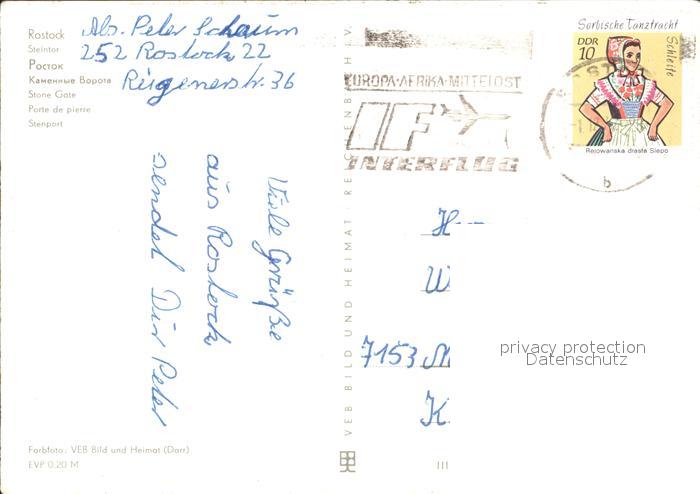 Rostock
Steintor
Росток
Каменные Ворота
Stone Gate
Porte de pierre
Stenport
Abs. Peter Schaum
252 Rostock 22
Rügenerstr. 36
Viele Grüße
aus Rostock
sendet Dir Peter
Farbfoto: VEB Bild und Heimat (Darr)
EVP 0,20 M
VEB BILD UND HEIMAT REICHENBACH I. V.
III
EUROPA·AFRIKA·MITTELOST
IF
INTERFLUG
Sorbische Tanztracht
Schleife
DDR
10
Rejowanska drasta Slepo
b
H
W
7153
K.
privacy protection
Datenschutz